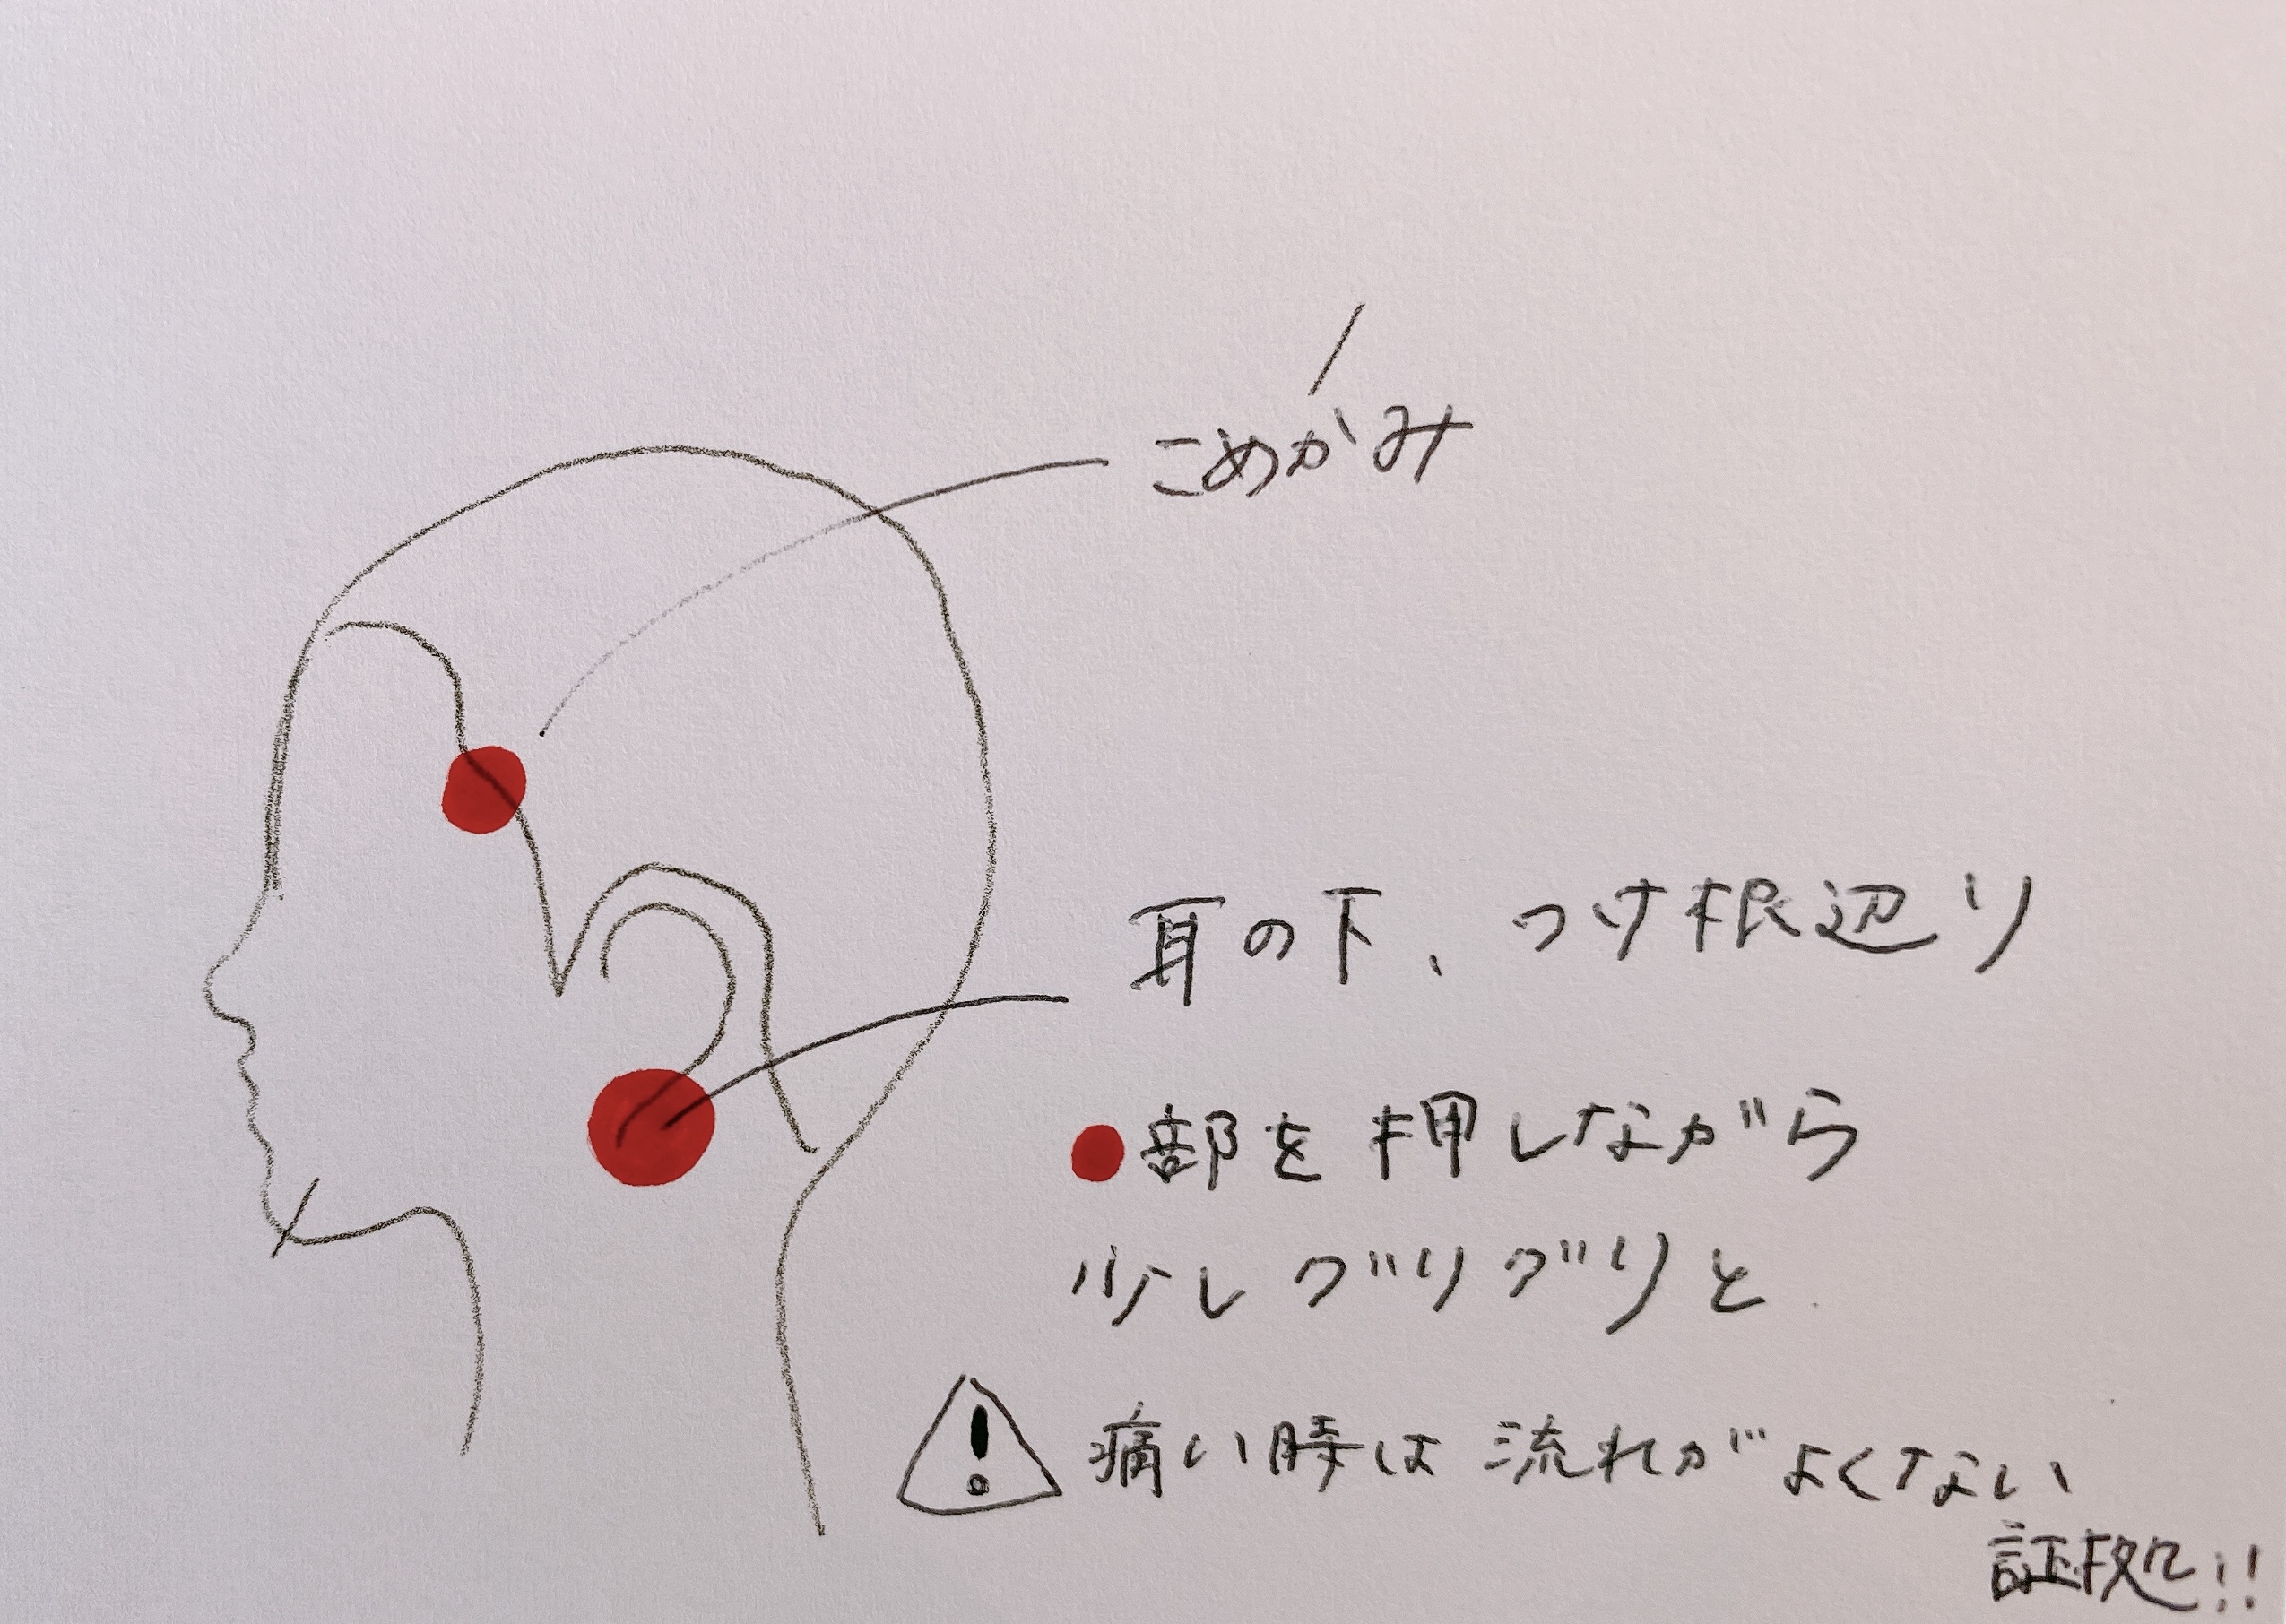 こめかみ
耳の下、つけ根辺り
●部を押しながら
少しグリグリと
痛い時は流れがよくない
証拠!!